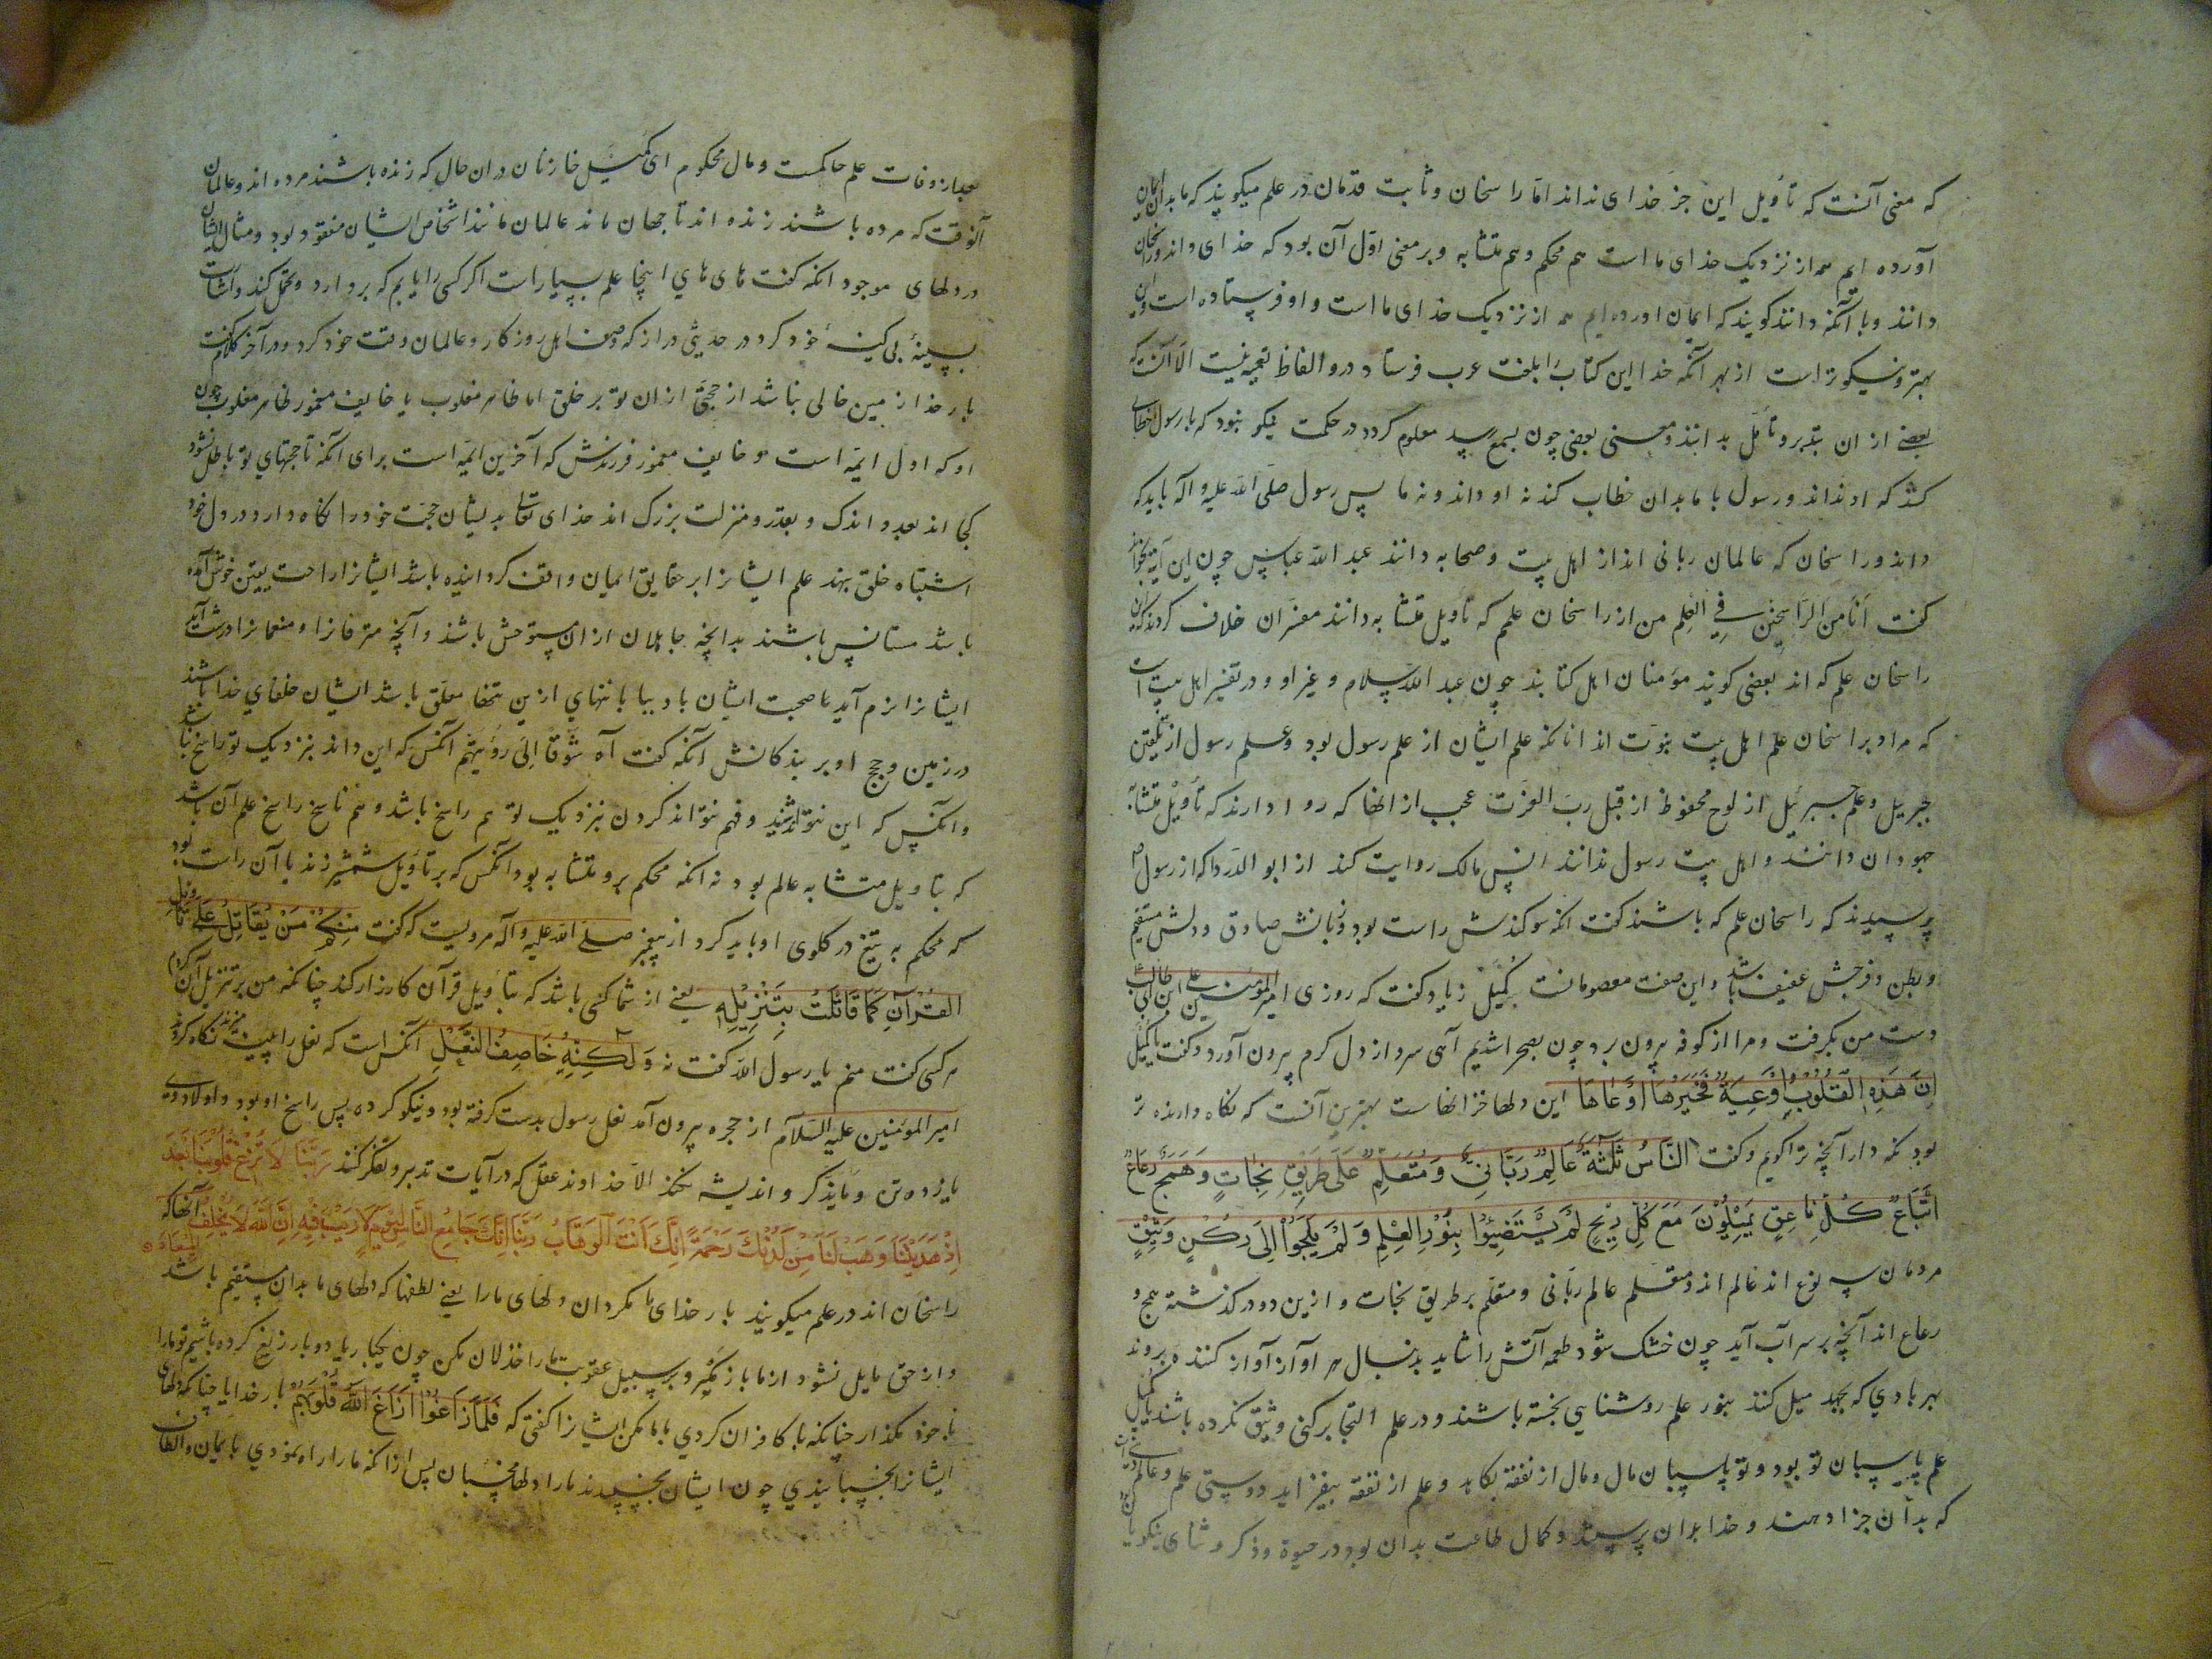 که معنی آنست که تأویل این جز خدای نداند اما راسخان و ثابت قدمان در علم میکویند که ما بدان ایمان
آورده ایم همه از نزدیک خدای ما است هم محکم و هم متشابه و بر معنی اول آن بود که خدای داند و راسخان
دانند و با آنکه دانند کویند که ایمان اورده ایم همه از نزدیک خدای ما است و او فرستاده است و این
بهتر و نیکوتر است از بهر آنکه خدا این کتاب را بلغت عرب فرستاد و در و الفاظ تعمیه نیست الا آنست که
بعضی از ان بتدبر و تأمل بدانند و معنی بعضی چون بسمع رسد معلوم کردد در حکمت نیکو نبود که با رسول خطابی
کند که او نداند و رسول با ما بدان خطاب کند نه او داند و نه ما پس رسول صلی الله علیه و آله باید که
داند و راسخان که عالمان ربانی اند از اهل بیت و صحابه دانند عبد الله عباس چون این آیه بخواند
کفت أنا من الراسخین فی العلم من از راسخان علمم که تأویل متشابه دانند مفسران خلاف کردند که این
راسخان علم که اند بعضی کویند مؤمنان اهل کتابند چون عبد الله سلام و غیر او و در تفسیر اهل بیت است
که مراد براسخان علم اهل بیت نبوت اند انانکه علم ایشان از علم رسول بود و علم رسول از تلقین
جبریل و علم جبرئیل از لوح محفوظ از قبل رب العزت عجب از انها که روا دارند که تأویل متشابه
جهودان دانند و اهل بیت رسول ندانند انس مالک روایت کند از ابو الدردا که از رسول
پرسیدند که راسخان علم که باشند کفت انکه سوکندش راست بود و زبانش صادق و دلش مستقیم
و بطن و فرجش عفیف باشد و این صفت معصومانست کمیل زیاد کفت که روزی امیر المؤمنین علی ابن ابی طالب
دست من بکرفت و مرا از کوفه بیرون برد چون بصحرا شدیم آهی سرد از دل کرم بیرون آورد و کفت یا کمیل
إن هذه القلوب أوعیة فخیرها أوعاها این دلها خزانهاست بهترین آنست که نکاه دارنده تر
بود نکه دار آنچه ترا کویم و کفت الناس ثلثة عالم ربانی و متعلم علی طریق نجات و همج رعاع
أتباع کل ناعق یمیلون مع کل ریح لم یستضیئوا بنور العلم و لم یلجوا إلی رکن وثیق
مردمان سه نوع اند عالم اند و متعلم عالم ربانی و متعلم بر طریق نجات و ازین دو در کذشته همج و
رعاع اند آنچه بر سر آب آید چون خشک شود طعمه آتش را شاید بدنبال هر آواز آواز کننده بروند
بهر بادی که بجهد میل کنند بنور علم روشنایی نجسته باشند و در علم التجا برکنی وثیق نکرده باشند یا کمیل
علم پاسبان تو بود و تو پاسبان مال و مال از نفقه بکاهد و علم از نفقه بیفزاید دوستی علم و عالم دینی است
که بدان جزا دهند و خدا را بدان پرستند و کمال طاعت بدان بود در حیوة و ذکر و ثنای نیکو
بعد از وفات علم حاکمست و مال محکوم ای کمیل خازنان در ان حال که زنده باشند مرده اند و عالمان
آنوقت که مرده باشند زنده اند تا جهان ماند عالمان مانند اشخاص ایشان مفقود بود و مثال ایشان
در دلهای موجود انکه کفت های های اینجا علم بسیار است اکر کسی را یابم که بردارد و تحمل کند و اشارت
بسینه بی کینه خود کرد در حدیثی دراز که وصف اهل روزکار و عالمان وقت خود کرد و در آخر کلام کفت
بار خدا زمین خالی نباشد از حجتی از ان تو بر خلق اما ظاهر مغلوب یا خایف مغمور ظاهر مغلوب چون
او که اول ایمه است و خایف مغمور فرزندش که آخرین ایمه است برای آنکه تا حجتهای تو باطل نشود
کجا اند بعدد اندک و بقدر و منزلت بزرک اند خدای تعالی بدیشان حجت خود را نکاه دارد و در دل خود
اشتباه خلق نهند علم ایشانرا بر حقایق ایمان واقف کردانیده باشد ایشانرا راحت یقین خوش آمده
باشد مستانس باشند بدانچه جاهلان از ان مستوحش باشند و آنچه مترفانرا و منعمانرا درشت آید
ایشانرا نرم آید با صحبت ایشان با دنیا با تنهای ازین تنها معلق باشد ایشان خلفای خدا باشند
در زمین و حجج او بر بندکانش آنکه کفت آه شوقا إلی رؤیتهم آنکس که این داند بنزدیک تو راسخ نباشد
و آنکس که این نتواند شنید و فهم نتواند کردن بنزدیک تو هم راسخ باشد و هم ناسخ راسخ علم آن باشد
که بتأویل متشابه عالم بود نه انکه محکم برو متشابه بود آنکس که بر تأویل شمشیر زند با آن راست بود
که محکم به تیغ در کلوی او باید کرد از پیغمبر صلی الله علیه و آله مرویست که کفت منکم من یقاتل علی تأویل
القرآن کما قاتلت بتنزیله یعنی از شما کسی باشد که بتأویل قرآن کارزار کند چنانکه من بر تنزیل آن کردم
هر کسی کفت منم یا رسول الله کفت نه و لکنه خاصف النعل آنکس است که نعل را پینه میزند نکاه کردند
امیر المؤمنین علیه السلام از حجره بیرون آمد نعل رسول بدست کرفته بود و نیکو کرده پس راسخ او بود و اولاد وی
یازده تن و ما یذکر و اندیشه نکند الا خداوند عقل که در آیات تدبر و تفکر کنند ربنا لا تزغ قلوبنا بعد
إذ هدیتنا و هب لنا من لدنک رحمة إنک أنت الوهاب ربنا إنک جامع الناس لیوم لا ریب فیه إن الله لا یخلف المیعاد آنها که
راسخان اند در علم میکویند بار خدای ما مکردان دلهای ما را یعنی لطفها که دلهای ما بدان مستقیم باشد
و از حق مایل نشود از ما باز مکیر و بر سبیل عقوبت ما را خذلان مکن چون یکبار یا دو بار زیغ کرده باشیم تو ما را
با خود مکذار چنانکه با کافران کردی با ما مکن ایشانرا کفتی که فلما زاغوا أزاغ الله قلوبهم بار خدایا چنانکه دلهای
ایشانرا بچسبانیدی چون ایشان بچسبیدند ما را دلها مچسبان پس از انکه ما را راه نمودی بایمان و الطاف